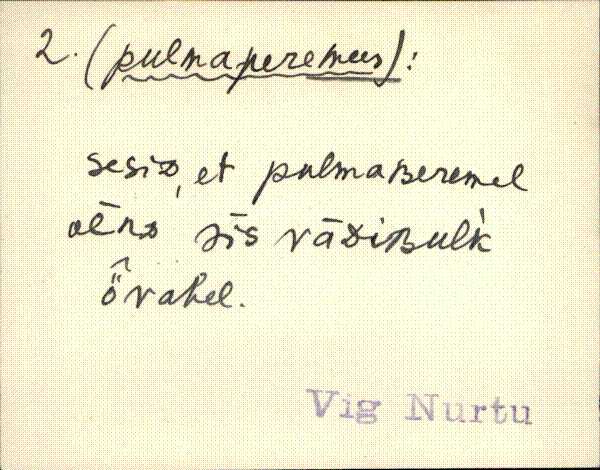 2. (pulmaperemees):
sesiᴅ, et pulmaʙeremel
olēnᴅ sīs vāᴅiʙulk
õ̬vakel.
Vig Nurtu